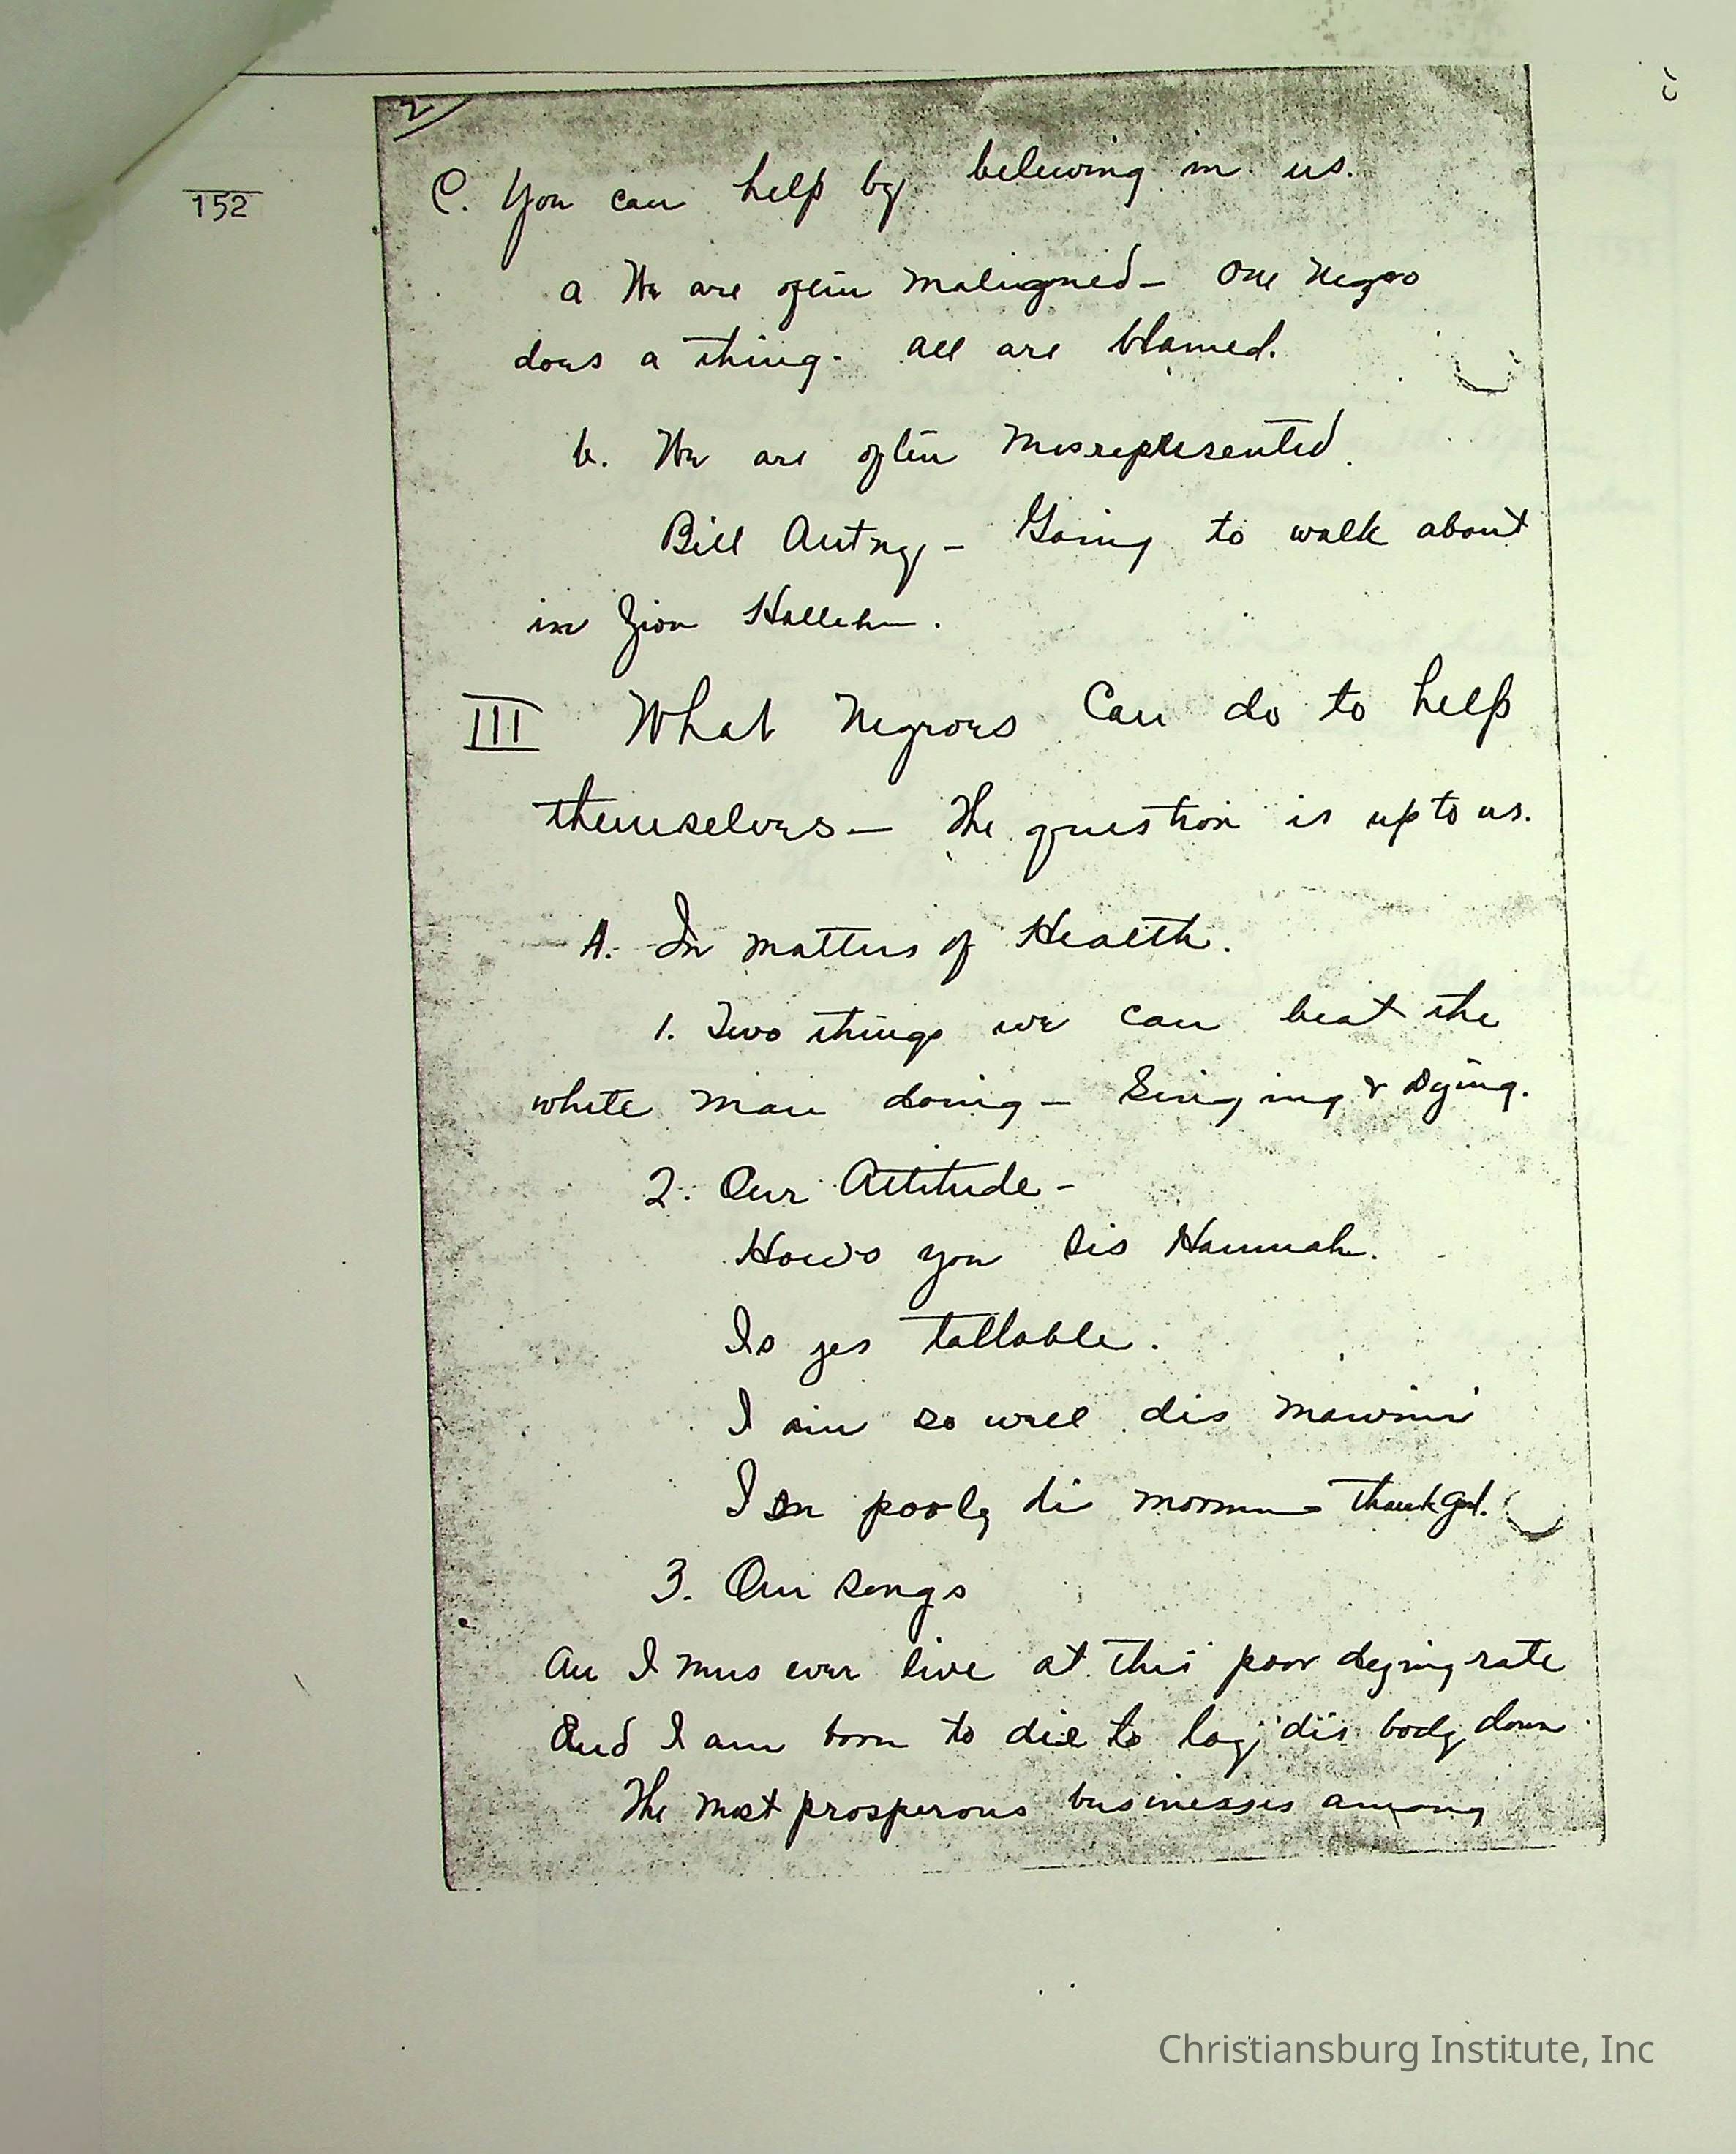 2
152
C. You can help by believing in us.
a We are often maligned - One Negro
does a thing - all are blamed.
b. We are often misrepresented.
Bill Autny - Going to walk about
in Zion Halleh.
III What Negroes Can do to help
themselves - The question is up to us.
A. In matters of Health.
1. Two things we can beat the
white man doing - Singing & Dying.
2. Our Attitude -
How's you Sis Hannah.
Is jes tollable.
I ain so well dis mawnin
I on pooly di mornin thank God.
3. Our songs
An I mus ever live at this poor dying rate
And I am born to die to lay dis body down
The most prosperous businesses among
Christiansburg Institute, Inc